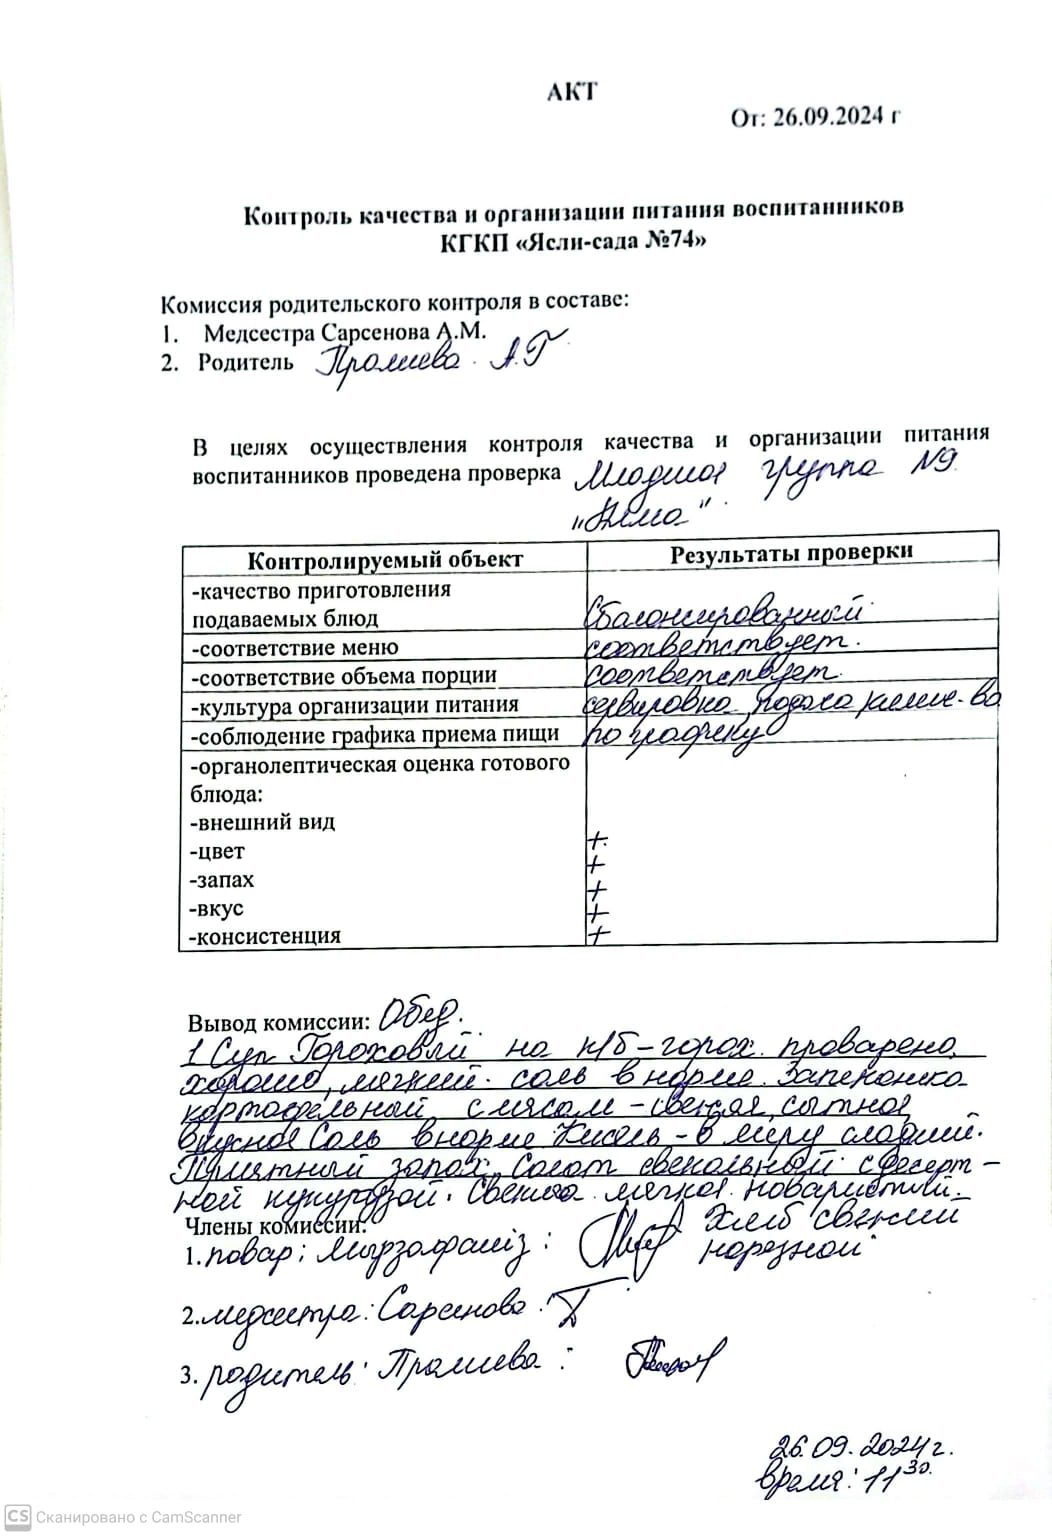 АКТ
От: 26.09.2024 г
Контроль качества и организации питания воспитанников
КГКП «Ясли-сада №74»
Комиссия родительского контроля в составе:
1. Медсестра Сарсенова А.М.
2. Родитель Пралиева А.Г
В целях осуществления контроля качества и организации питания
воспитанников проведена проверка Младшая группа №9
Контролируемый объект Результаты проверки
-качество приготовления
подаваемых блюд Сбалонсированный
-соответствие меню соответствует.
-соответствие объема порции соответствует
-культура организации питания сервировка, подача
-соблюдение графика приема пищи по графику
-органолептическая оценка готового
блюда:
-внешний вид +
-цвет +
-запах +
-вкус +
-консистенция +
Вывод комиссии: Обед.
1 Суп Гороховый на к/б – горох проварено,
хорошо, мягкий. соль в норме. Запеконка
картофельный с мясом – свежая, сытная
вкусная Соль в норме Кисель – в меру сладкий.
Приятный запах. Салат свекольный с десерт –
ной кукурузой. Свекла мягкая.
Члены комиссии: Хлеб свежий
1. повар: : нарезной
2. медсестра: Сарсенова.
3. родитель: Пралиева :
26.09.2024 г.
время: 11 30.
CS Сканировано с CamScanner